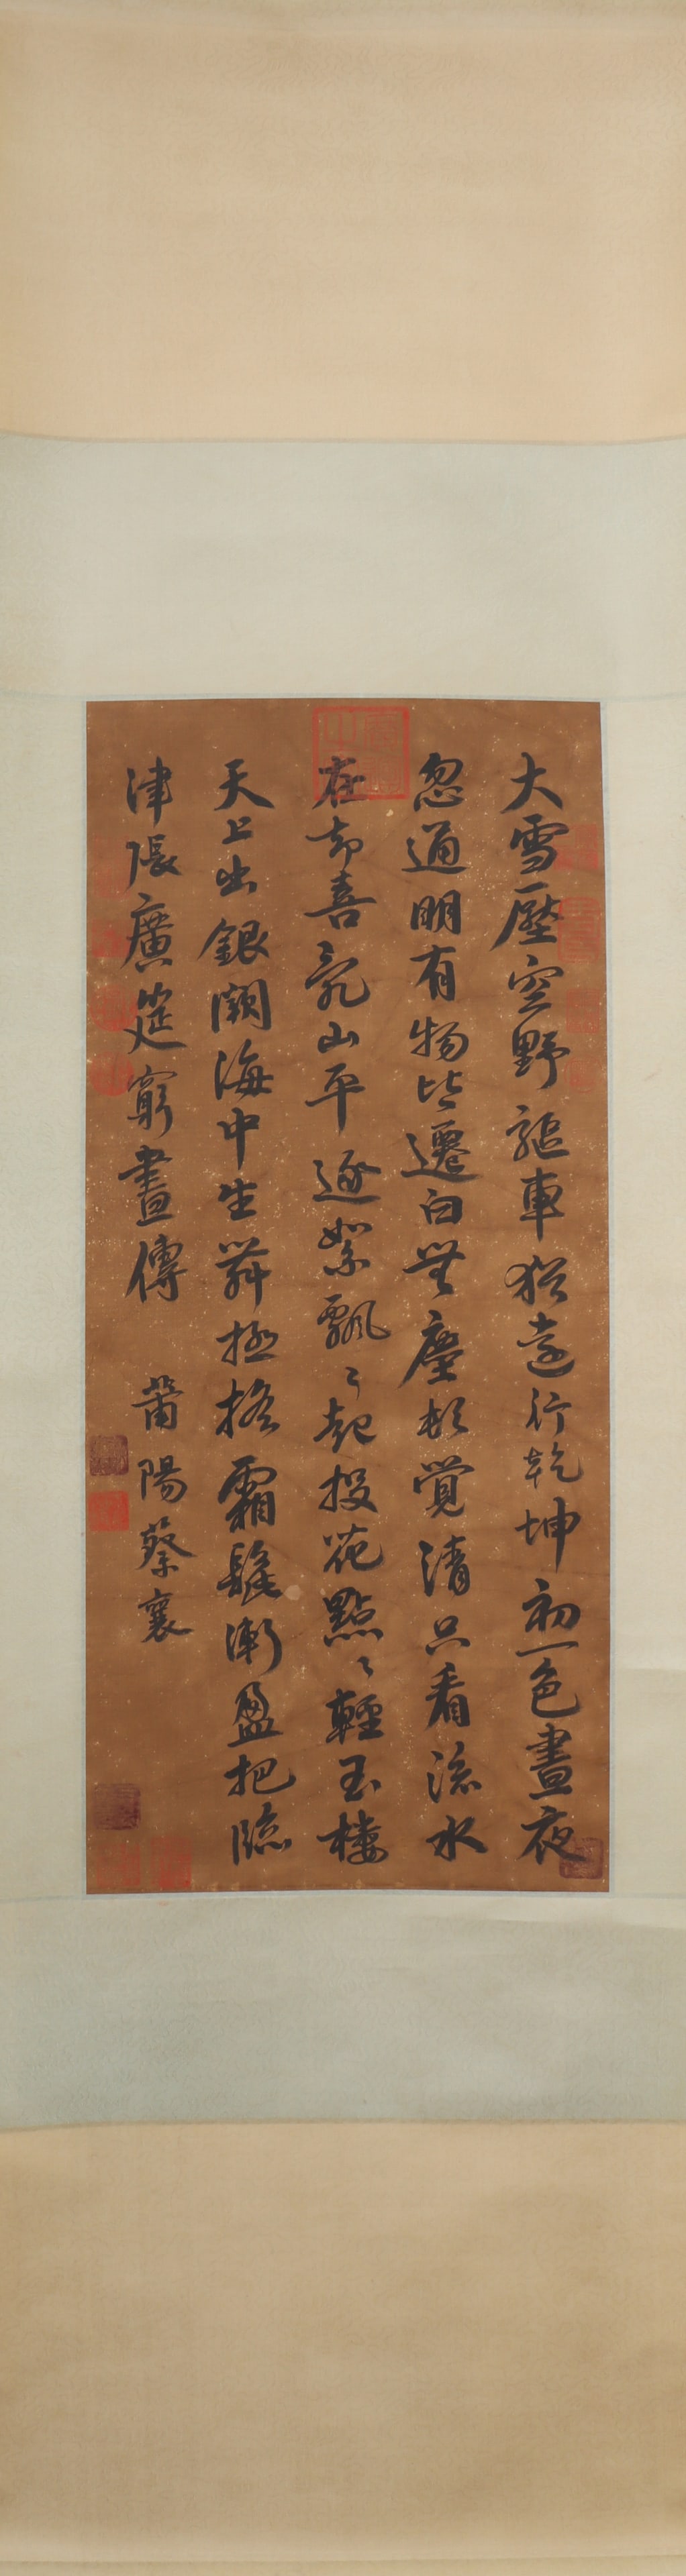 大雪壓空野驅車猶遠行乾坤初一色晝夜
忽通明有物皆遷白無塵頓覺清只看流水
在却喜亂山平逐絮飄〻起投花點〻輕玉樓
天上出銀闕海中生舞極搖霜鬢漸盈把臨
津張廣筵窮晝傳
莆陽蔡襄